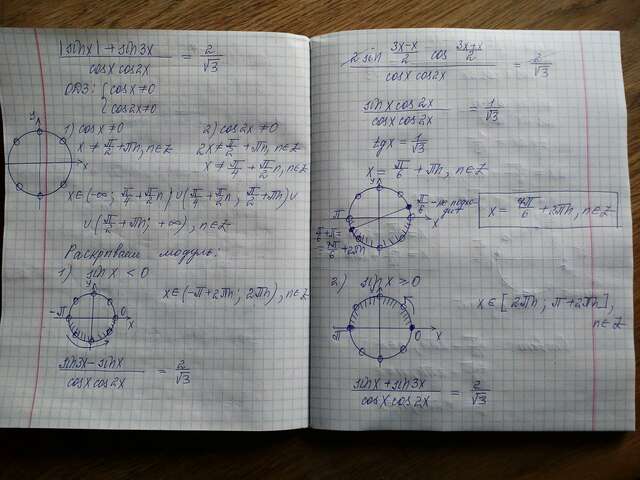 |sinx| + sin3x / cosx cos2x = 2/√3
ОДЗ: { cosx ≠ 0
cos2x ≠ 0
1) cosx ≠ 0 2) cos2x ≠ 0
x ≠ π/2 + πn, n∈Z 2x ≠ π/2 + πn, n∈Z
x ≠ π/4 + π/2 n, n∈Z
y
x
x∈(-∞; π/4 + π/2 n) ∪ (π/4 + π/2 n, π/2 + πn) ∪
∪ (π/2 + πn; +∞), n∈Z
Раскрываем модуль:
1) sinx < 0
x∈(-π + 2πn; 2πn), n∈Z
-π 0
sin3x - sinx / cosx cos2x = 2/√3
2 sin (3x-x)/2 cos (3x+x)/2 / cosx cos2x = 2/√3
sinx cos2x / cosx cos2x = 1/√3
tgx = 1/√3
x = π/6 + πn, n∈Z
y
π/6 - не подходит
π
x
π/6 + π =
= 7π/6 + 2πn
x = 7π/6 + 2πn, n∈Z
2) sinx ≥ 0
x∈[2πn; π + 2πn],
n∈Z
y
π 0 x
sinx + sin3x / cosx cos2x = 2/√3